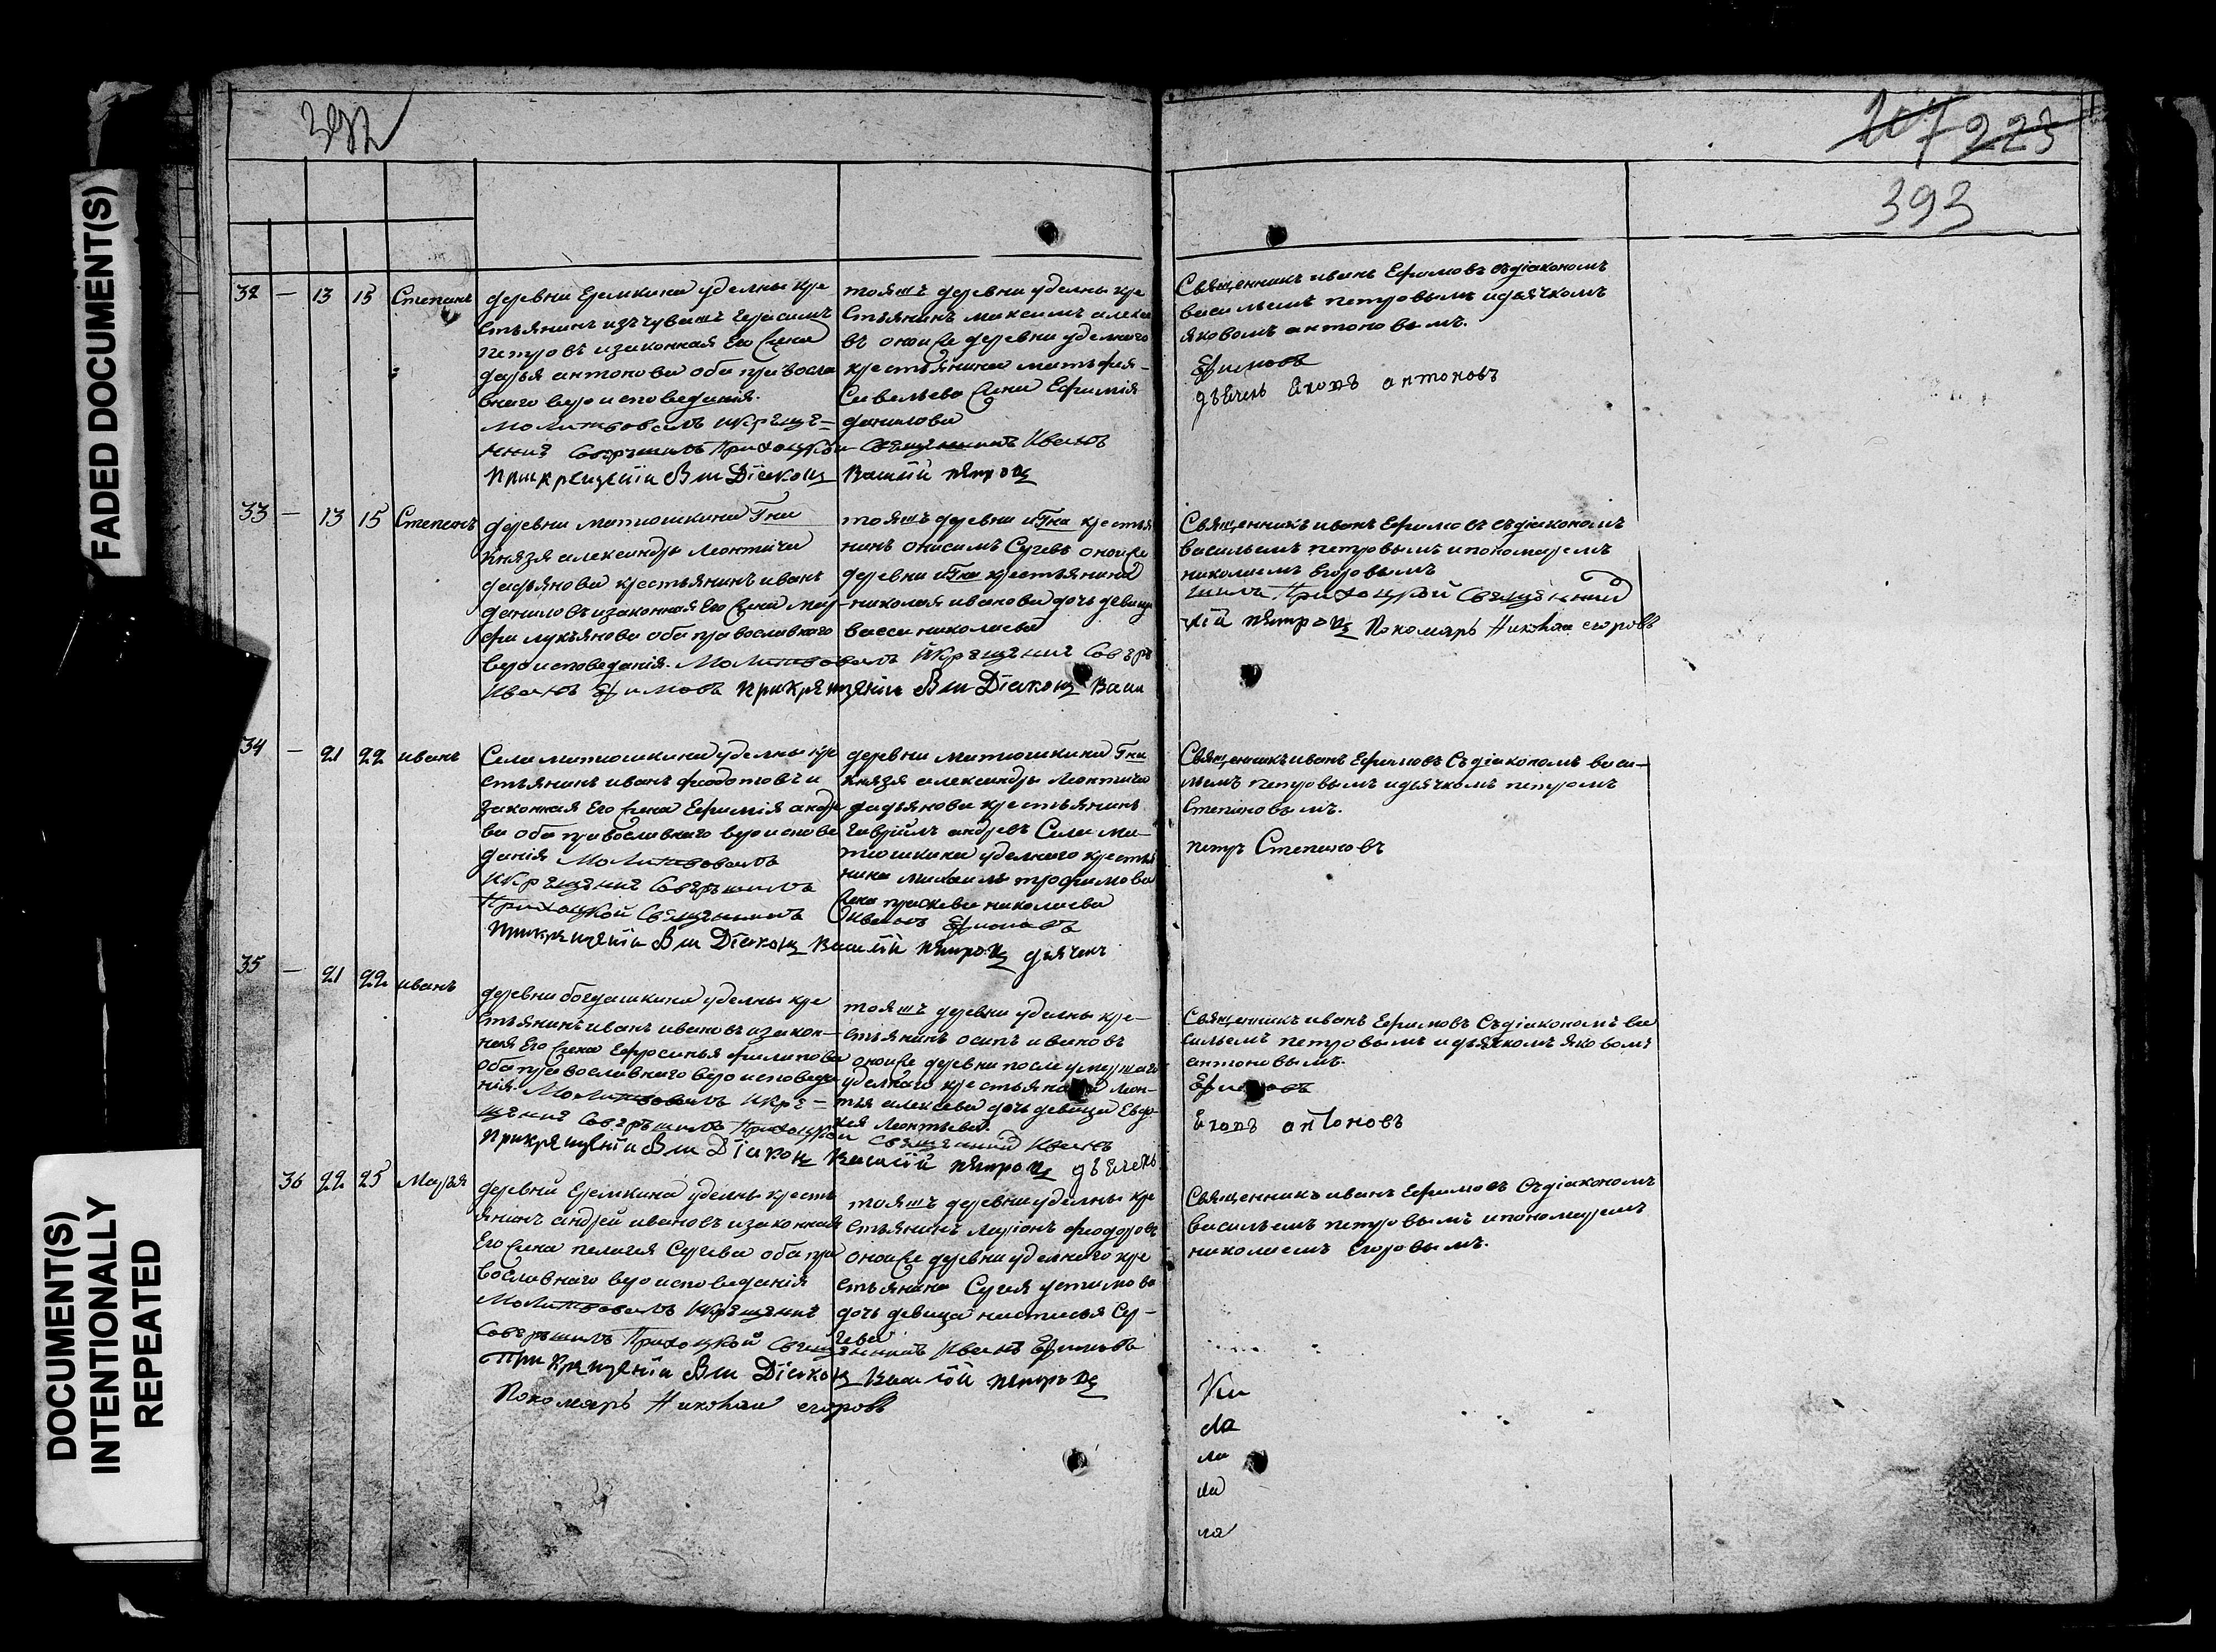 FADED DOCUMENT(S)
DOCUMENT(S)
INTENTIONALLY
REPEATED
392
207 223
393
32 — 13 15 Степанъ
деревни Еремкина уделны кре
стьянинъ изъ чувашъ герасимъ
петровъ и законная Его жена
дарья антонова оба правосла
внаго вероисповедания.
Молитвовалъ и крѣще=
ние совершилъ Приходской Священникъ Иванъ
При крещении был Диакон Василий петров
тояжъ деревни уделны кре
стьянинъ максимъ алексе
въ оной же деревни уделного
крестьянина матъфея
Савельева жена Ефимия
данилова
Священникъ иванъ Ефимовъ съ диакономъ
васильемъ петровымъ и дьячкомъ
яковомъ антоновымъ.
Ефимовъ
дьячекъ Яковъ антоновъ
33 — 13 15 Степанъ
деревни матюшкина Гна
князя александра леонтича
дадьянова крестьянинъ иванъ
даниловъ и законная Его жена мар
фа лукьянова оба православного
вероисповедания. Молитвовалъ и крещение совер
Иванъ Ефимовъ при крещении был Диаконъ Васи
тояжъ деревни и Гна крестья
нинъ онисимъ Сергевъ оной же
деревни и Гна крестьянина
николая иванова дочь девица
васса николаева
Священникъ иванъ Ефимовъ съ диакономъ
васильемъ петровымъ и пономаремъ
николаемъ Егоровымъ
шилъ Приходской Священник
лий петров Пономарь Николай егоровъ
34 — 21 22 иванъ
Села матюшкина уделны кре
стьянинъ иванъ федотовъ и
законная Его жена Ефимия андре
ва оба православного вероиспове
дания Молитвовалъ
и крещение совершилъ
Приходской Священникъ Иванъ Ефимовъ
При крещении был Диакон Василий петров дьячекъ
деревни матюшкина Гна
князя александра леонтича
дадьянова крестьянинъ
гаврилъ андревъ Села ма-
тюшкина уделного крестья
нина михаила трофимова
жена прасковья николаева
Священникъ иванъ Ефимовъ съ диакономъ васи-
льемъ петровымъ и дьячкомъ петромъ
Степановымъ.
петръ Степановъ
35 — 21 22 иванъ
деревни богдашкина уделны кре
стьянинъ иванъ ивановъ и закон-
ная Его жена Ефросинья филипова
оба православного вероисповеда
ния Молитвовалъ и кре=
щение совершилъ Приходской Священникъ Иванъ
При крещении был Диакон Василий петров дьячекъ
тояжъ деревни уделны кре-
стьянинъ осипъ ивановъ
оной же деревни после умершаго
уделного крестьянина леон-
тья алексева дочь девица Евдо-
кея леонтьева
Священникъ иванъ Ефимовъ съ диакономъ ва
сильемъ петровымъ и дьячкомъ яковомъ
антоновымъ.
Ефимовъ
Яковъ антоновъ
36 22 25 Марья
деревни Еремкина уделны кресть
янинъ андрей ивановъ и законная
Его жена пелагея Сергева оба пра
вославного вероисповедания
Молитвовалъ и крещение
совершилъ Приходской Священникъ Иванъ Ефимовъ
При крещении был Диакон Василий петров
Пономарь Николай егоровъ
тояжъ деревни уделны кре
стьянинъ ларионъ феодоровъ
оной же деревни уделного кре
стьянина Сергея устимова
дочь девица настасья Сер-
гева
Священникъ иванъ Ефимовъ съ диакономъ
васильемъ петровымъ и пономаремъ
николаемъ Егоровымъ.
ла
ла
ла
ла